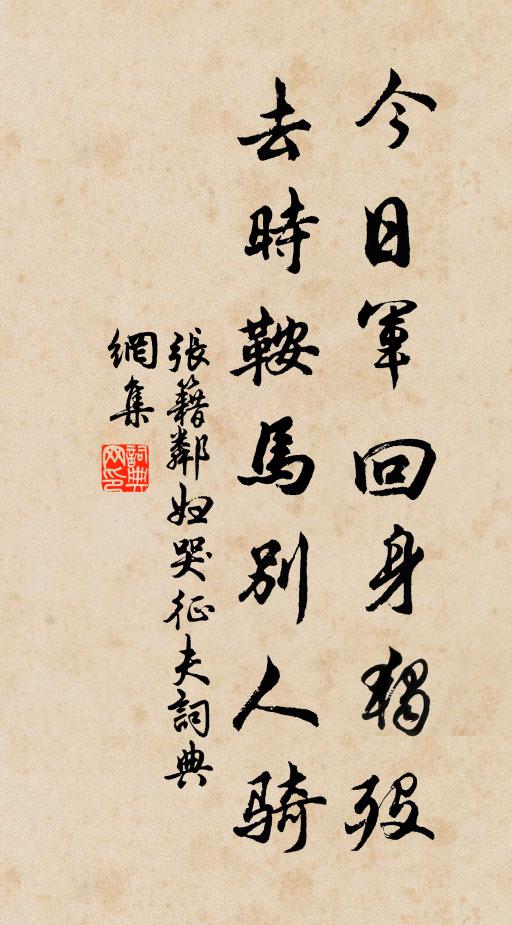 今日軍回身獨歿
去時鞍馬別人騎
張籍鄰婦哭征夫詞典
網集
詞典
网印